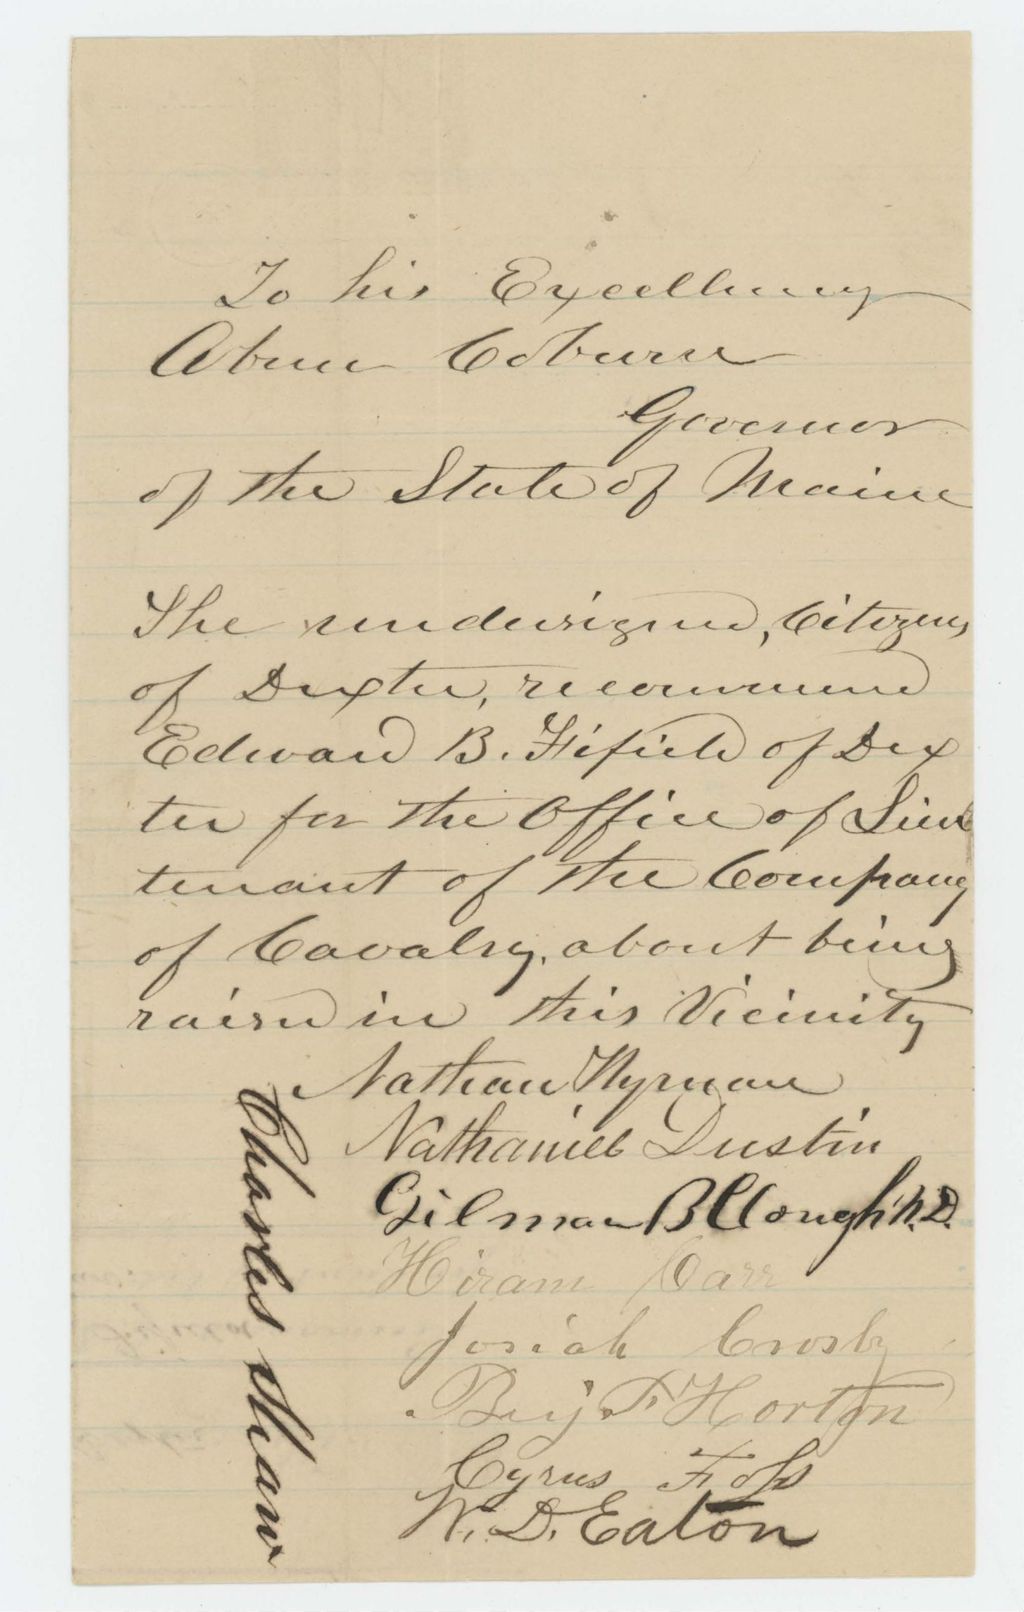 To his Excellency
Abner Coburn
Governor
of the State of Maine
The undersigned, Citizens
of Dexter, recommend
Edward B. Fifield of Dex
ter for the Office of Lieu
tenant of the Company
of Cavalry, about being
raised in this Vicinity
Nathan Wyman
Nathaniel Dustin
Gilman B Clough M.D.
Hiram Carr
Josiah Crosby
Benj. F. Horton
Cyrus Foss
W. D. Eaton
Charles Shaw